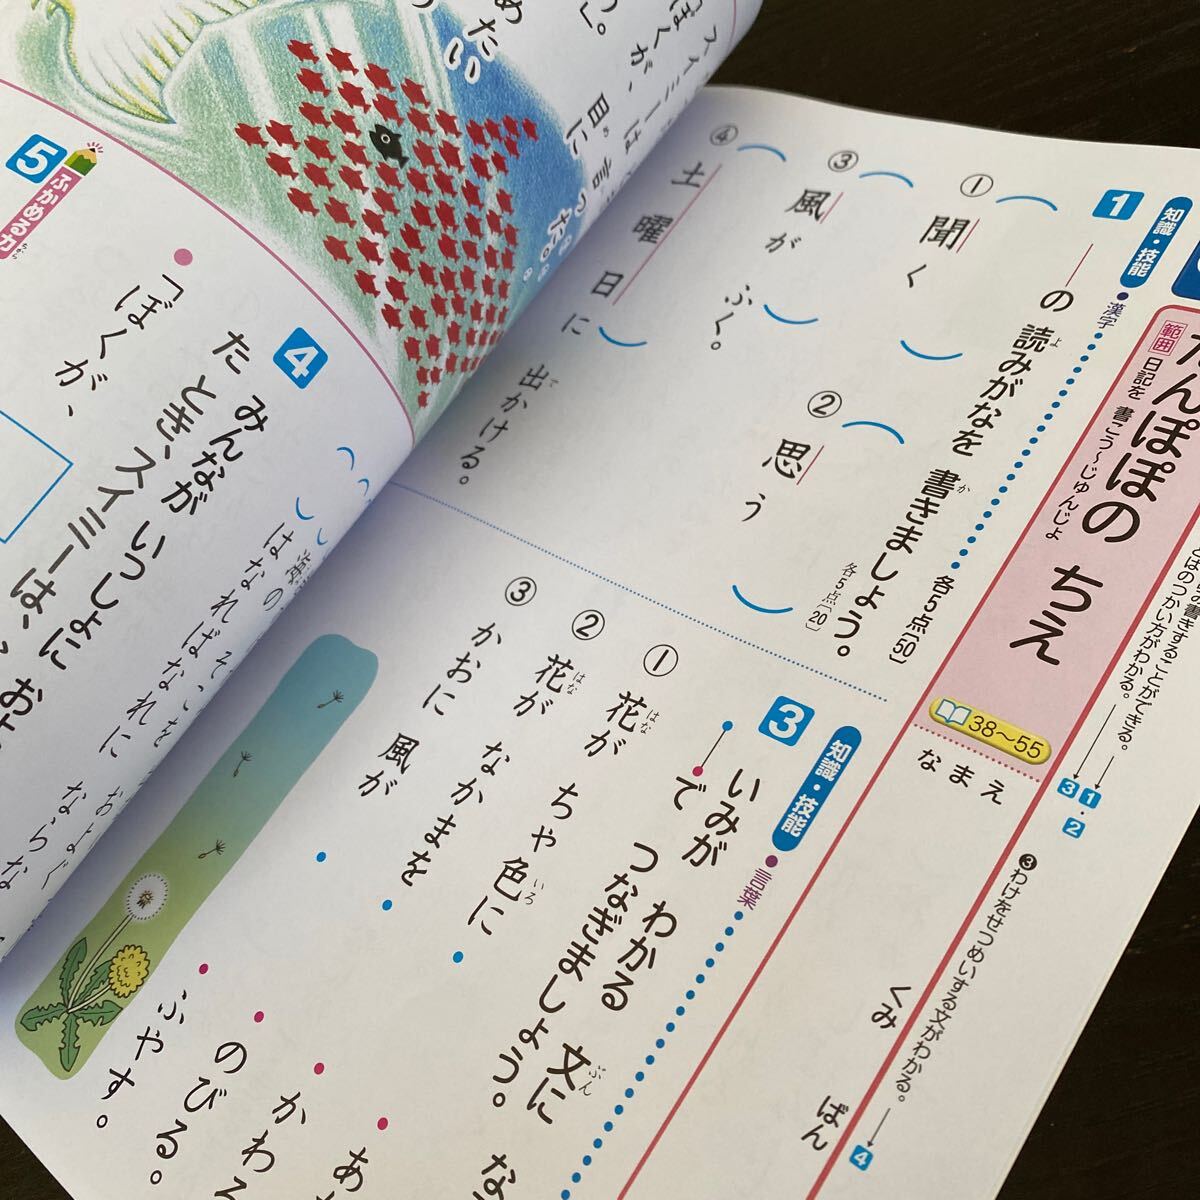 たんぽぽの ちえ
範囲 日記を 書こう〜じゅんじょ
38〜55
なまえ
くみ
ばん
とばのつかい方がわかる。
書きすることができる。
1・2
3
❸わけをせつめいする文がわかる。
4
1
知識・技能
●漢字
各5点〔50〕
―の 読みがなを 書きましょう。
よ
か
各5点〔20〕
① 聞く
② 思う
③ 風が ふく。
④ 土曜日に 出かける。
で
3
知識・技能
●言葉
いみが わかる 文に な
ぶん
で つなぎましょう。
① 花が ちゃ色に
はな
いろ
② 花が なかまを
はな
③ かおに 風が
かわる
のびる。
ふやす。
スイミーは
「ぼくが、目に
め
」。
4
みんなが いっしょに およ
た とき、スイミーは、
はなればなれに ならな
5
ふかめる力
ちから
●「ぼくが、